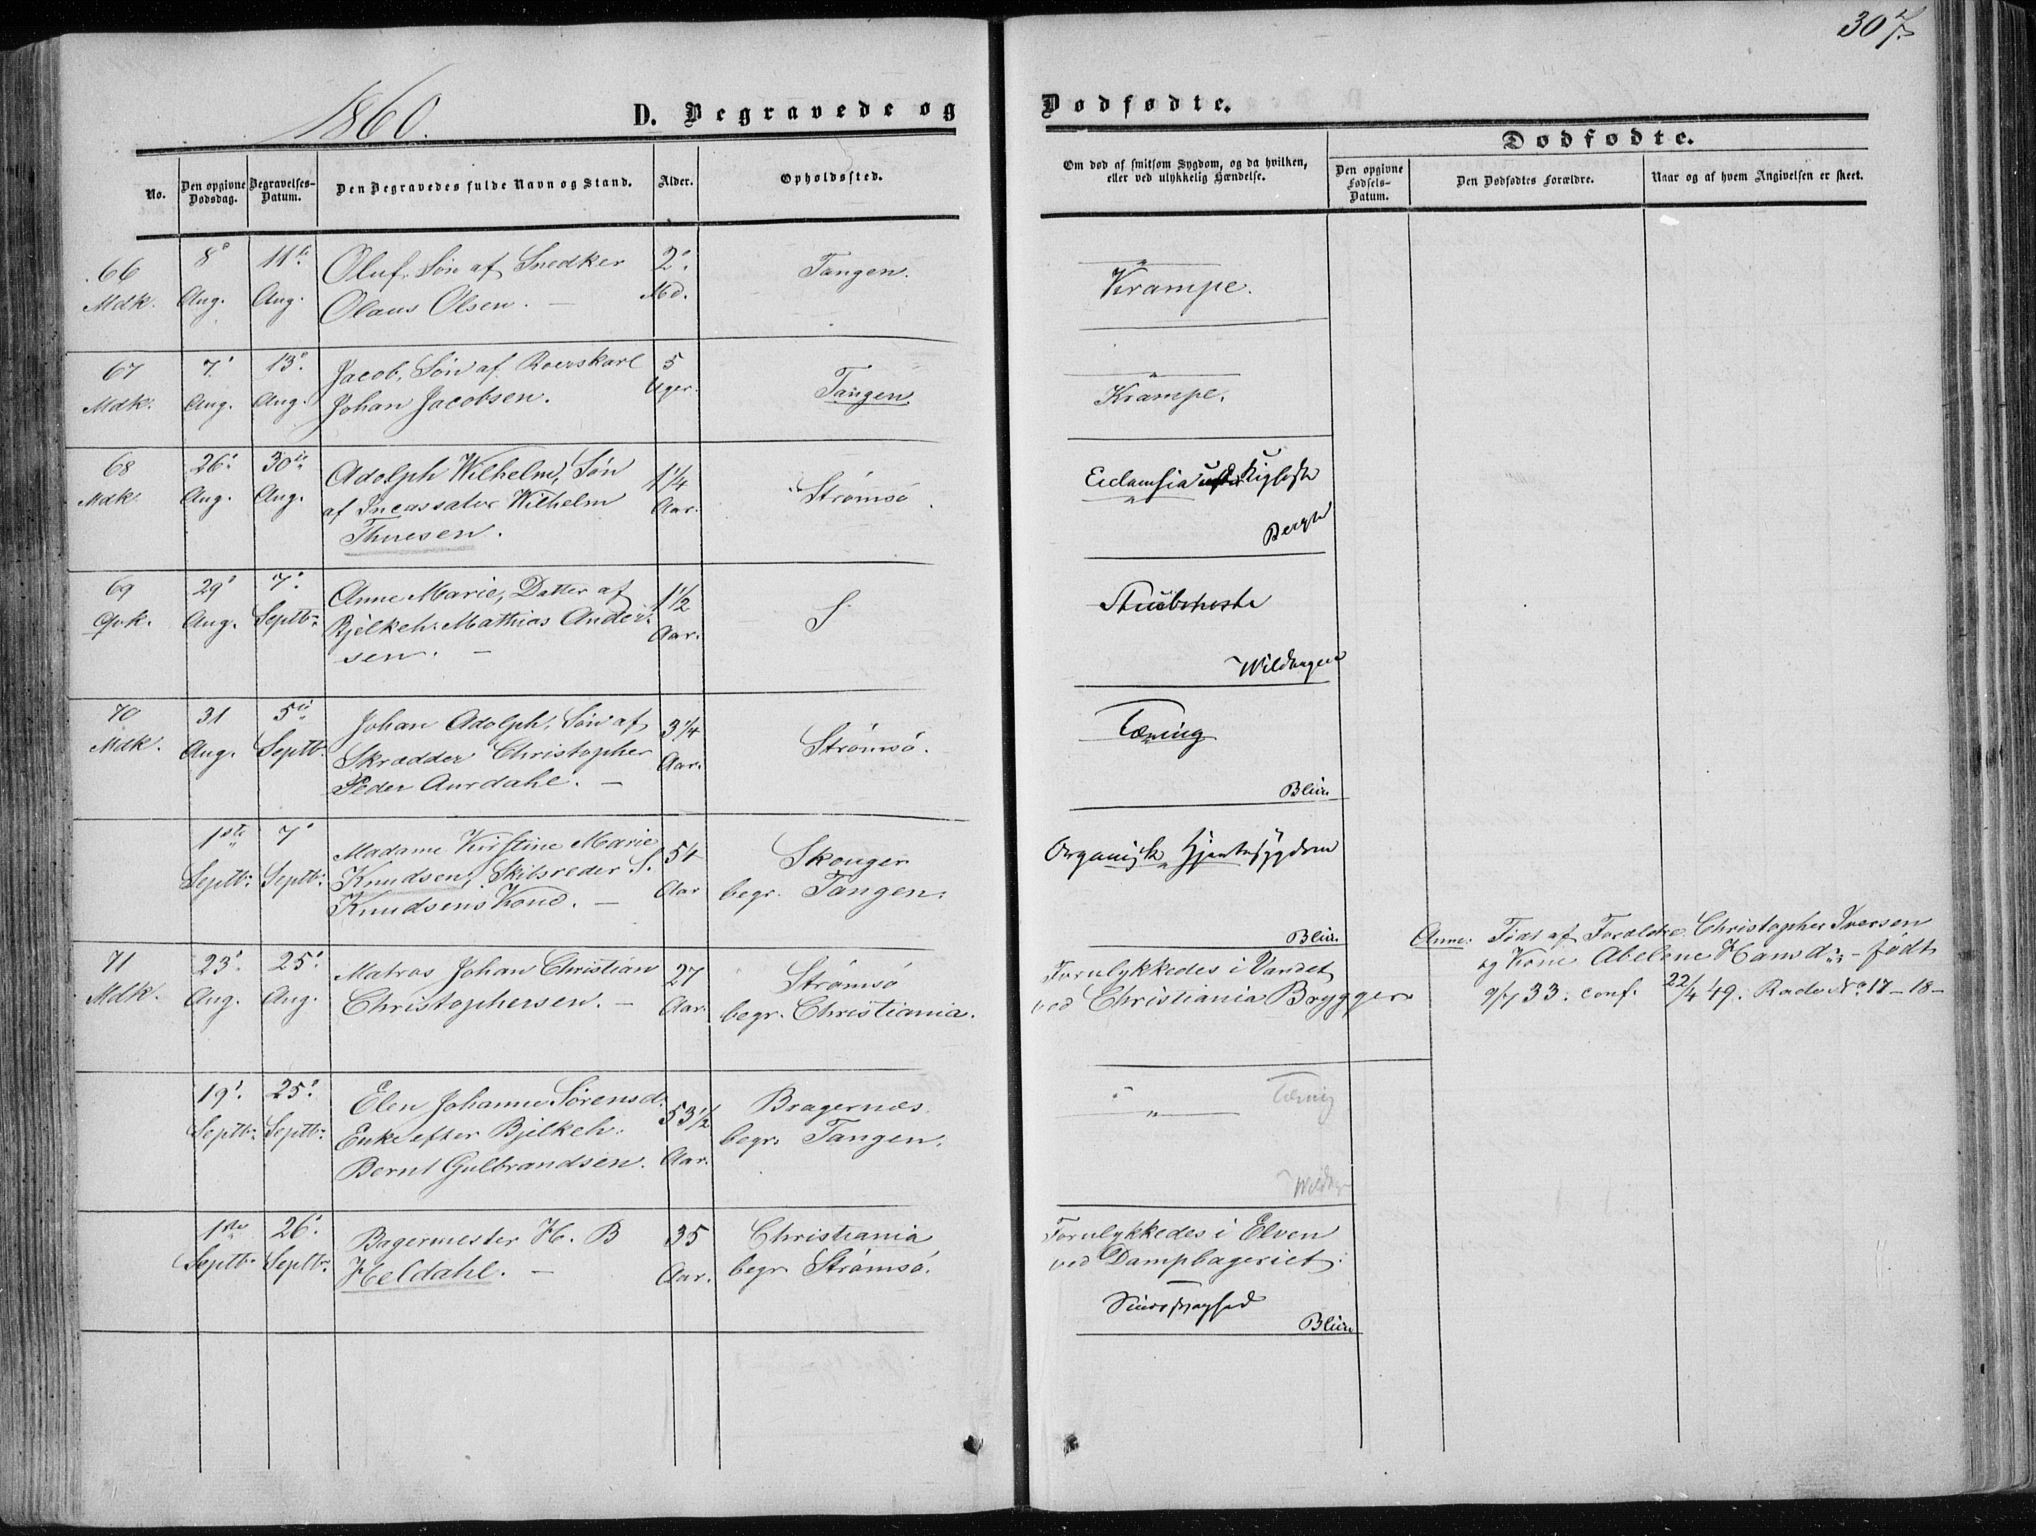 307.
1860.
D. Begravede og
Dødfødte.
Dødfødte.
No.
Den opgivne Dødsdag.
Begravelses-Datum.
Den Begravedes fulde Navn og Stand.
Alder.
Opholdssted.
Om død af smitsom Sygdom, og da hvilken, eller ved ulykkelig Hændelse.
Den opgivne Fødsels-Datum.
Den Dødfødtes Forældre.
Naar og af hvem Angivelsen er skeet.
66 8 11te Oluf, Søn af Snedker 2 Tangen.
Mdk. Aug. Aug. Olaus Olsen. — Md. Krampe.
67 7 13 Jacob, Søn af Roerskarl 5 Tangen
Mdk. Aug. Aug. Johan Jacobsen. Uger. Krampe.
68 26 30 Adolph Wilhelm, Søn 1 1/4 Strømsø.
Mdk. Aug. Aug. af Incassator Wilhelm Aar. Eclamsia
Thuesen.
69 29 7 Anne Marie, Datter af 1 1/2 S.
Qvk. Aug. Septbr. Bjelkeh. Mathias Ander- Aar.
sen. — Wildhagen
70 31 5 Johan Adolph, Søn af 3 1/4 Strømsø.
Mdk. Aug. Septbr. Skrædder Christopher Aar. Tæring
Peder Aurdahl. — Blich
1ste 7 Madame Kirstine Marie 54 Skouger
Septbr. Septbr. Knudsen, Skibsreder S. Aar begr. Tangen. Organisk Hjertesygdom
Knudsens Kone. — Blich
71 23 25 Matros Johan Christian 27 Strømsø Forulykkedes i Vandet
Mdk. Aug. Aug. Christophersen. — Aar. begr. Christiania. ved Christiania Brygger
Anm: Født af Forældre Christopher Iversen
og Kone Abelene Hansd. - født
9/7 33. conf. 22/4 49. Rado No 17-18-
19 25 Elen Johanne Sørensd. 53 1/2 Bragernæs. Tæring
Septbr. Septbr. Enke efter Bjelkeh. Aar. begr. Tangen.
Bernt Gulbrandsen.
1ste 26 Bagermester H. B 35 Christiania Forulykkedes i Elven
Septbr. Septbr. Heldahl. — Aar. begr. Strømsø. ved Dampbageriet.
Sindssvaghed
Blich